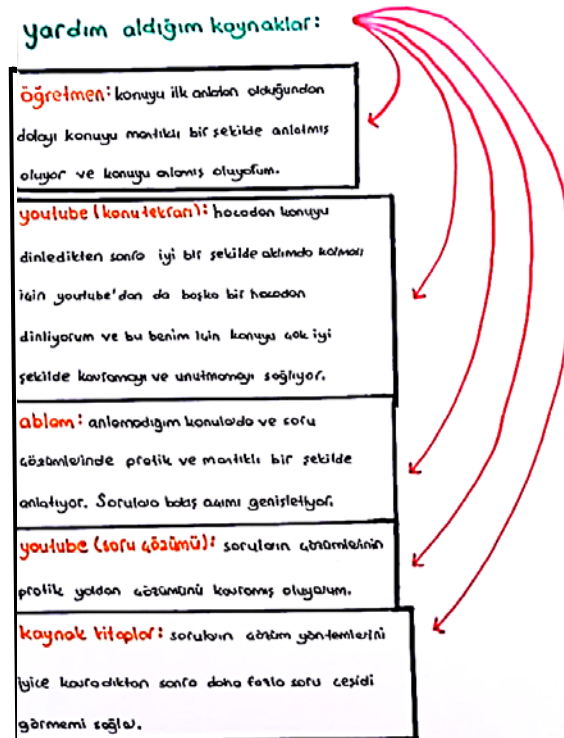 yardım aldığım kaynaklar:
öğretmen: konuyu ilk anlatan olduğundan
dolayı konuyu mantıklı bir şekilde anlatmış
oluyor ve konuyu anlamış oluyorum.
youtube (konu tekrarı): hocadan konuyu
dinledikten sonra iyi bir şekilde aklımda kalması
için youtube'dan da başka bir hocadan
dinliyorum ve bu benim için konuyu çok iyi
şekilde kavramayı ve unutmamayı sağlıyor.
ablam: anlamadığım konularda ve soru
çözümlerinde pratik ve mantıklı bir şekilde
anlatıyor. Sorulara bakış açımı genişletiyor.
youtube (soru çözümü): soruların çözümlerinin
pratik yoldan çözümünü kavramış oluyorum.
kaynak kitaplar: soruların çözüm yöntemlerini
iyice kavradıktan sonra daha fazla soru çeşidi
görmemi sağlar.